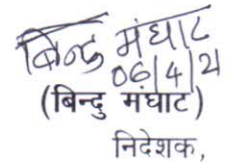 बिन्दु मंघाट
06/4/21
(बिन्दु मंघाट)
निदेशक,